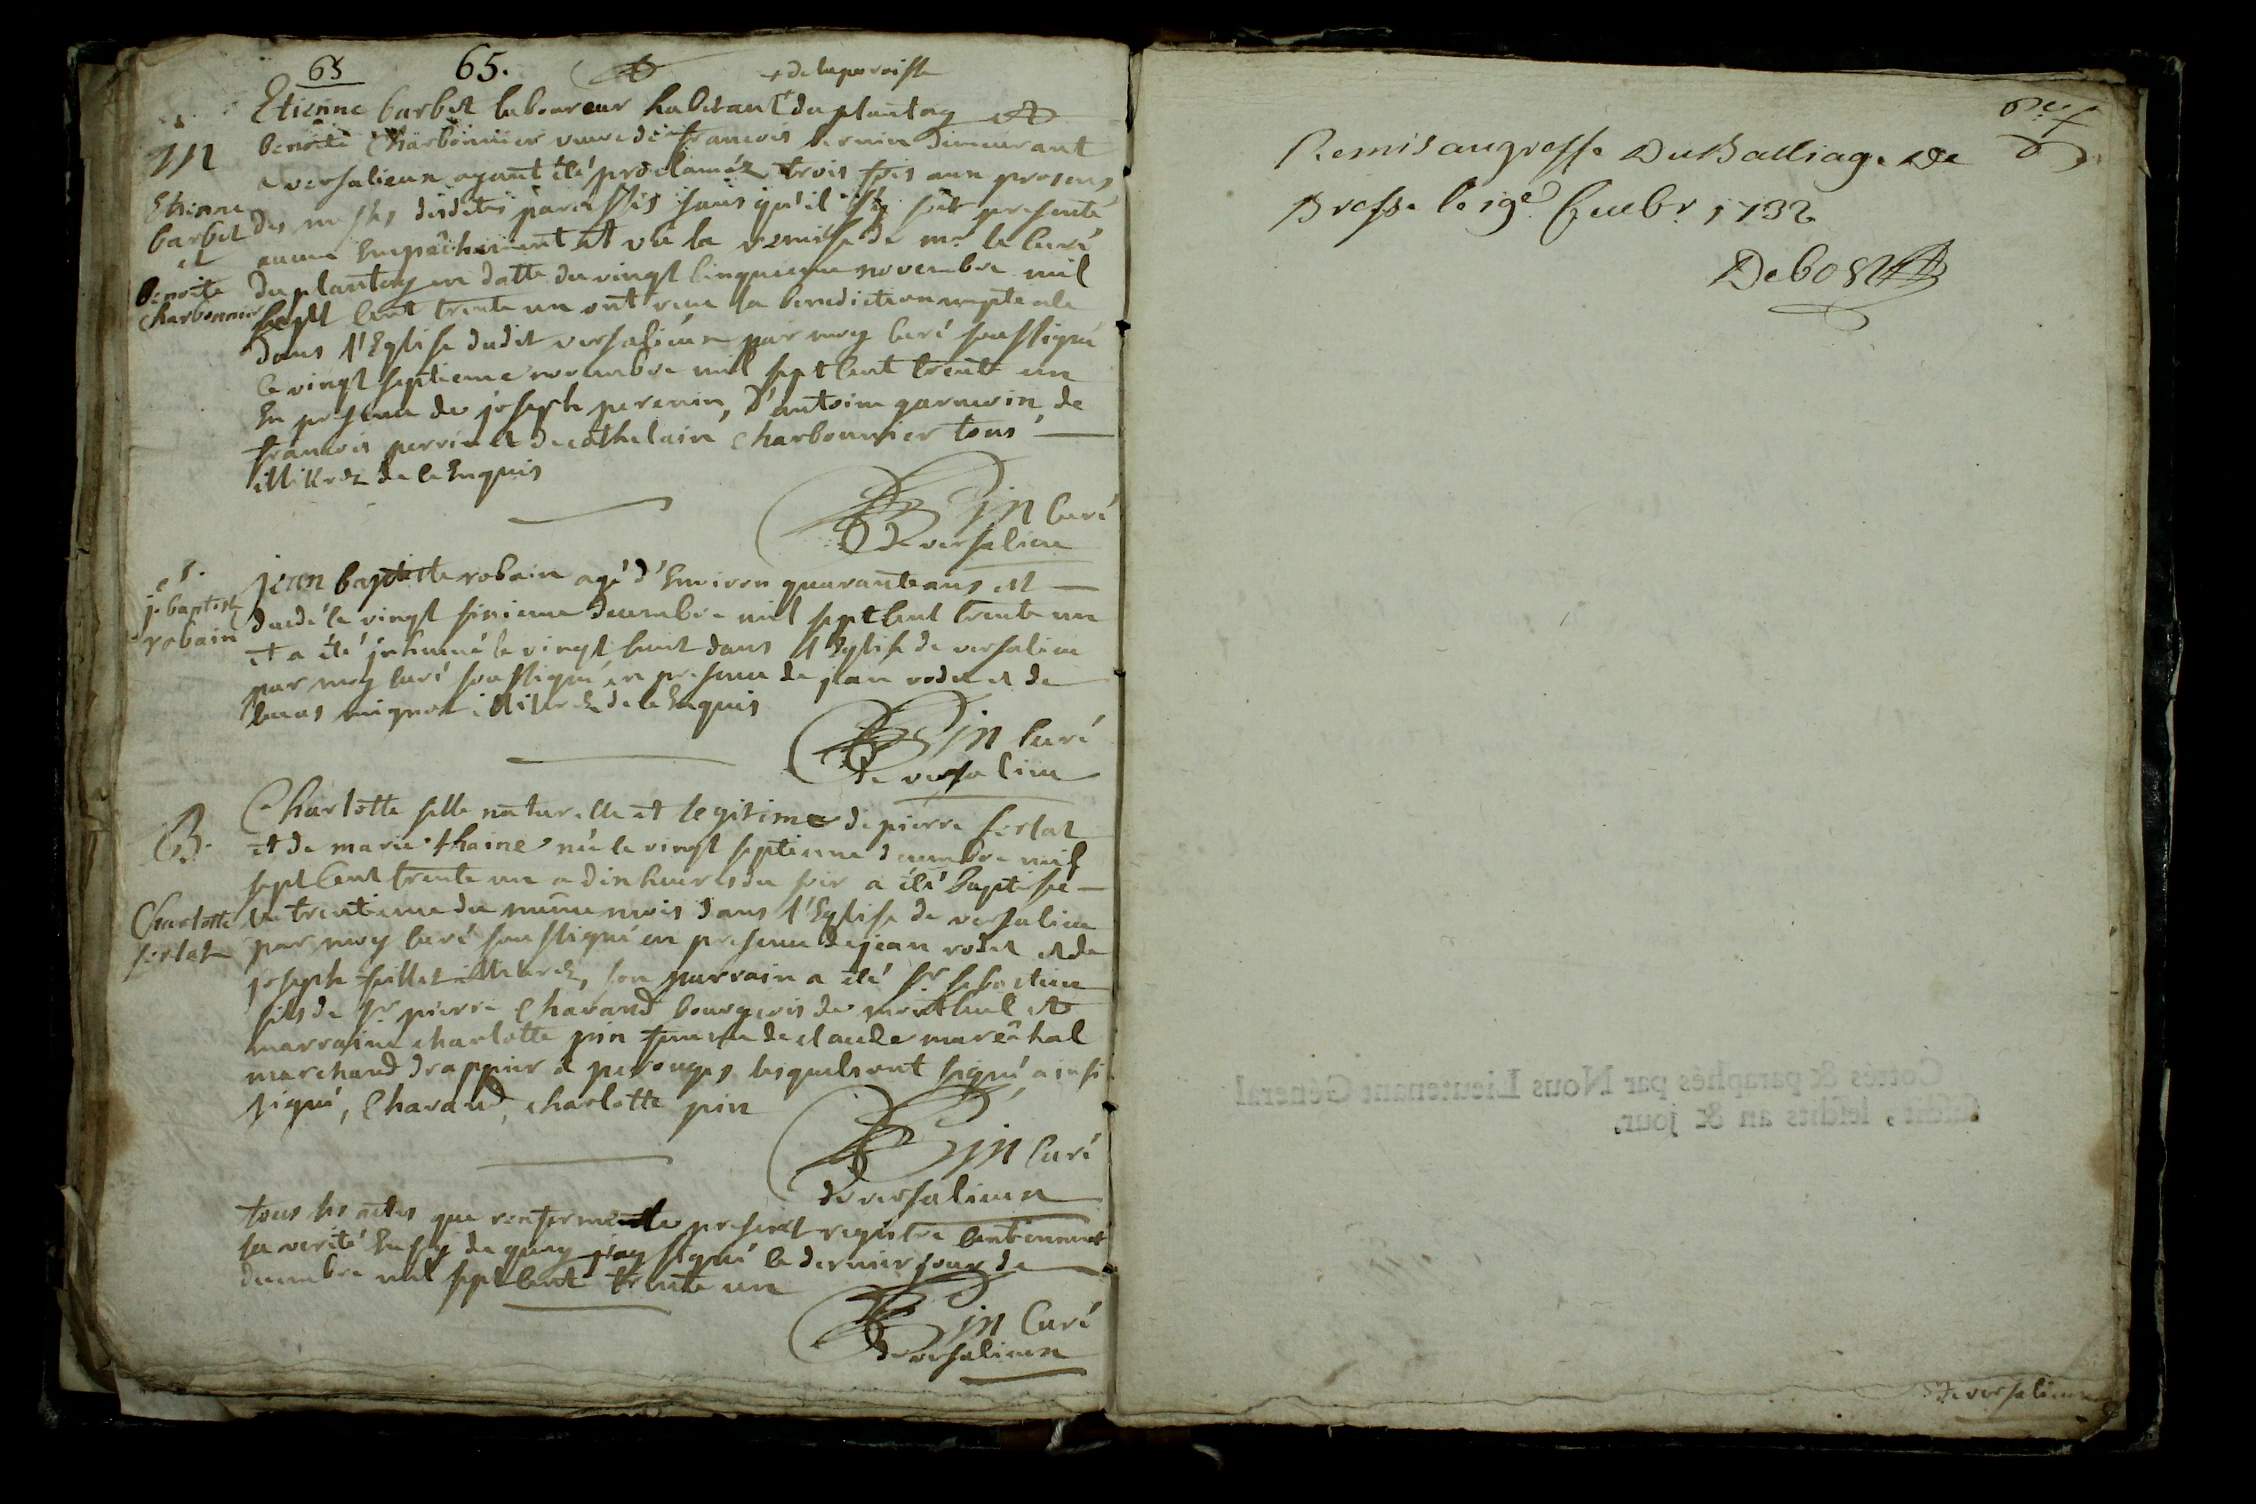 65 65.
+ de la paroisse
Etienne barbet laboureur habitant du plantay et
benoite Charbonnier veuve de francois bernin demeurant
a versalieux ayant été proclaméz trois fois aux prosnes
des messes desdites paroisses sans qu'il s'y soit presenté
aucun Empêchement et vû la remisse de mr. le Curé
du plantay en datte du vingt Cinquieme novembre mil
sept Cent trente un ont reçu la benediction nuptiale
dans l'Eglise dudit versalieux par moy Curé soussigné
le vingt septieme novembre mil sept Cent trente un
En presence de joseph perenin, d'antoine garnerin, de
francois perrin et de cathelain Charbonnier tous
illitréz de ce Enquis
M
Etienne
barbet
et
Benoite
charbonnier
Pin Curé
de versalieux
S.
j. baptiste
robain
jean baptiste robain agé d'Environ quarante ans est
decedé le vingt sixieme decembre mil sept Cent trente un
et a été inhumé le vingt huit dans l'Eglise de versalieux
par moy Curé soussigné en presence de jean rodet et de
lucas mignot illitréz de ce Enquis
Pin Curé
de versalieux
B.
Charlotte
fertat
Charlotte fille naturelle et legitime de pierre fertat
et de marie thaine née le vingt septieme decembre mil
sept Cent trente un a dix heures du soir a été baptisée
le trentieme du même mois dans l'Eglise de versalieux
par moy Curé soussigné en presence de jean rodet et de
joseph fillet illitréz, son parrain a été sr. sebastien
fils de sr. pierre Chavand bourgeois de montluel et
marraine charlotte pin femme de claude marêchal
marchand drappier a perouges lesquels ont signé, ainsi
signé, Chavand, charlotte pin
Pin Curé
de versalieux
tous les actes que renferme le present registre Contiennent
la verité En foy de quoy j'ay signé le dernier jour de
decembre mil sept Cent trente un
Pin Curé
de versalieux
Remis au greffe Du Balliage De
Bresse le 19e. fevbr. 1732
Debost
Cottés & paraphés par Nous Lieutenant Général
susdit, lesdits an & jour.
de versalieux